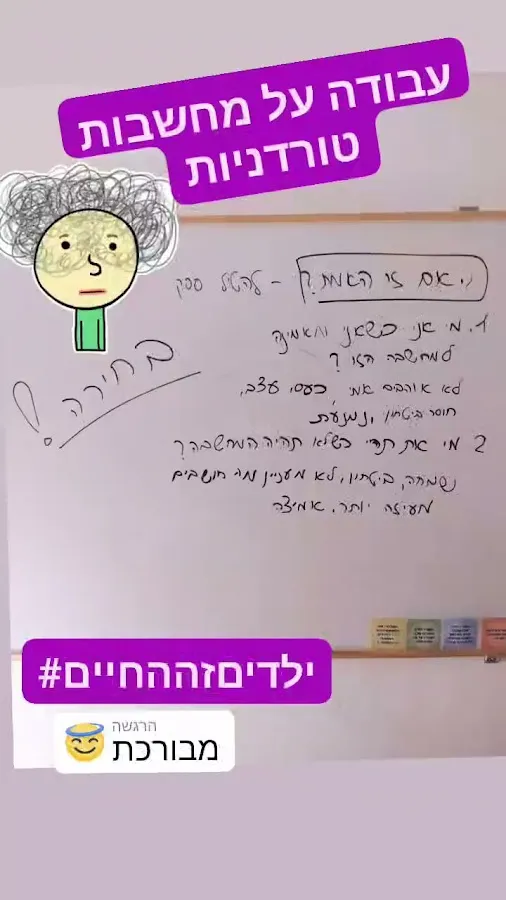 עבודה על מחשבות
טורדניות
האם זו האמת? - להטיל ספק
1. מי אני כשאני מאמינה
למחשבה הזו?
לא אוהבים אותי, כעס, עצב,
חוסר ביטחון, נמנעת
2 מי את תהיי כשלא תהיה המחשבה?
שמחה, ביטחון, לא מעניין מה חושבים
מעיזה יותר, אמיצה
בחירה!
#ילדיםזההחיים
הרגשה
מבורכת